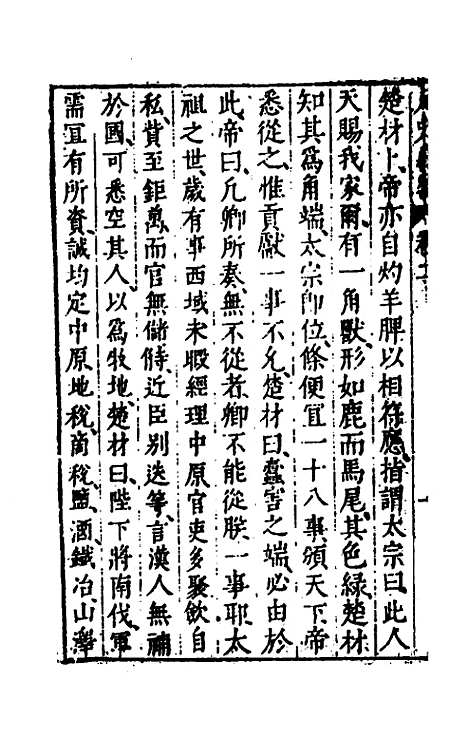 楚材卜、帝亦自灼羊脾以相符應、指謂太宗曰、此人
天賜我家、爾有一角獸、形如鹿而馬尾、其色綠、楚材
知其爲角端、太宗卽位、條便宜一十八事、頒天下、帝
悉從之、惟貢獻一事不允、楚材曰、蠹害之端、必由於
此、帝曰、凡卿所奏、無不從者、卿不能從朕一事耶、太
祖之世、歲有事西域、未暇經理中原、官吏多聚斂自
私、貲至鉅萬、而官無儲偫、近臣別迭等、言漢人無補
於國、可悉空其人、以爲牧地、楚材曰、陛下將南伐、軍
需宜有所資、誠均定中原、地稅、商稅、鹽、酒、鐵冶、山澤